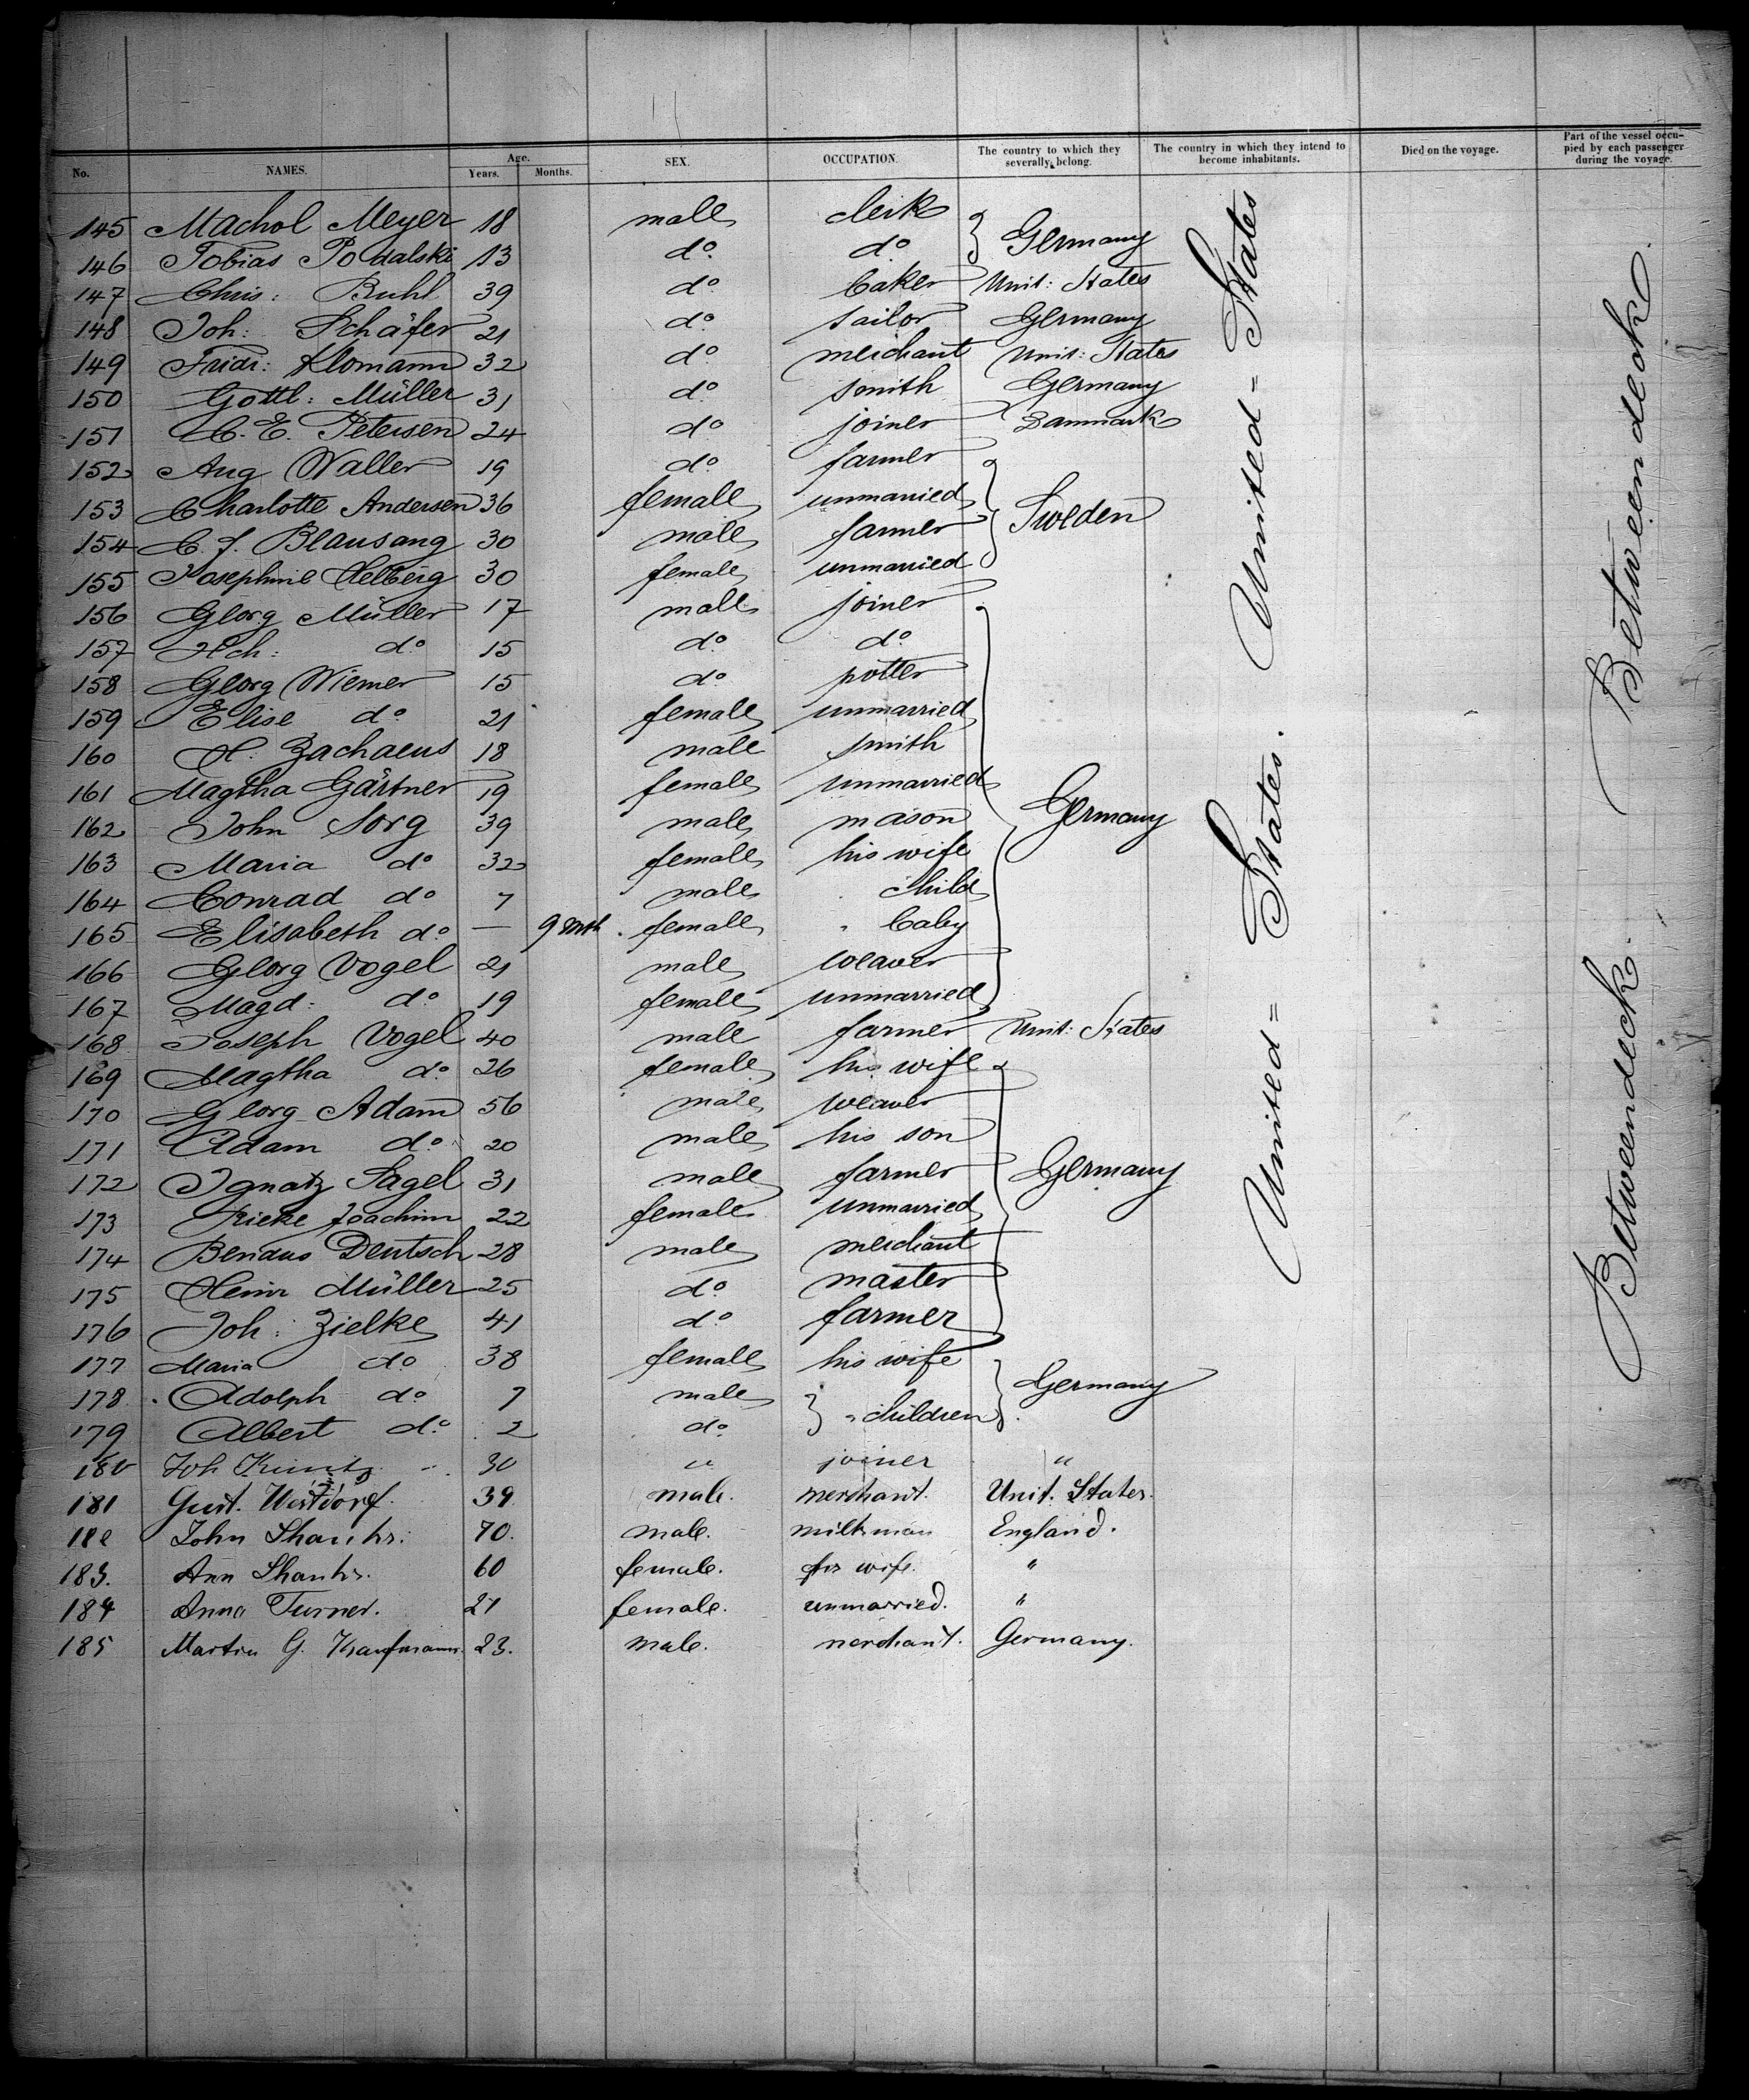 No. NAMES. Age. Years. Months. SEX. OCCUPATION. The country to which they severally belong. The country in which they intend to become inhabitants. Died on the voyage. Part of the vessel occupied by each passenger during the voyage.
145 Machol Meyer 18 male clerk
Germany
146 Tobias Podalski 13 do. do.
147 Chris: Buhl 39 do. baker Unit: States
148 Joh: Schäfer 21 do. sailor Germany
149 Fridr: Klomann 32 do. merchant Unit: States
150 Gottl: Müller 31 do. smith Germany
151 C. E. Petersen 24 do. joiner Danmark
152 Aug Waller 19 do. farmer
153 Charlotte Andersen 36 female unmarried
Sweden
154 C. J. Blausang 30 male farmer
155 Josephine Helberg 30 female unmarried
156 Georg Müller 17 male joiner
157 Hch: do. 15 do. do.
158 Georg Wiemer 15 do. potter
159 Elise do. 21 female unmarried
160 H. Zachaeus 18 male smith
161 Magtha Gärtner 19 female unmarried
Germany
162 John Sorg 39 male mason
163 Maria do 32 female his wife
164 Conrad do 7 male child
165 Elisabeth do. — 9 mth. female " baby
166 Georg Vogel 21 male weaver
167 Magd: do 19 female unmarried
168 Joseph Vogel 40 male farmer Unit: States
169 Magtha do. 26 female his wife
170 Georg Adam 56 male weaver
171 Adam do. 20 male his son
172 Ignatz Sagel 31 male farmer Germany
173 Frieke Joachim 22 female unmarried
174 Bendus Deutsch 28 male merchant
175 Heinr Müller 25 do. master
176 Joh: Zielke 41 do. farmer
177 Maria do 38 female his wife
Germany
178 Adolph do. 7 male
" children
179 Albert do. 2 do.
180 Joh 30 " joiner "
181 Gust. Westdorf. 39 male. merchant. Unit. States.
182 John 70. male. milkman England.
183. Ann 60 female. his wife. "
184 Anna Turner. 21 female. unmarried. "
185 Martin G. Kaufmann. 23. male. merchant. Germany.
United = States. United = States
Betweendeck. Betweendeck.